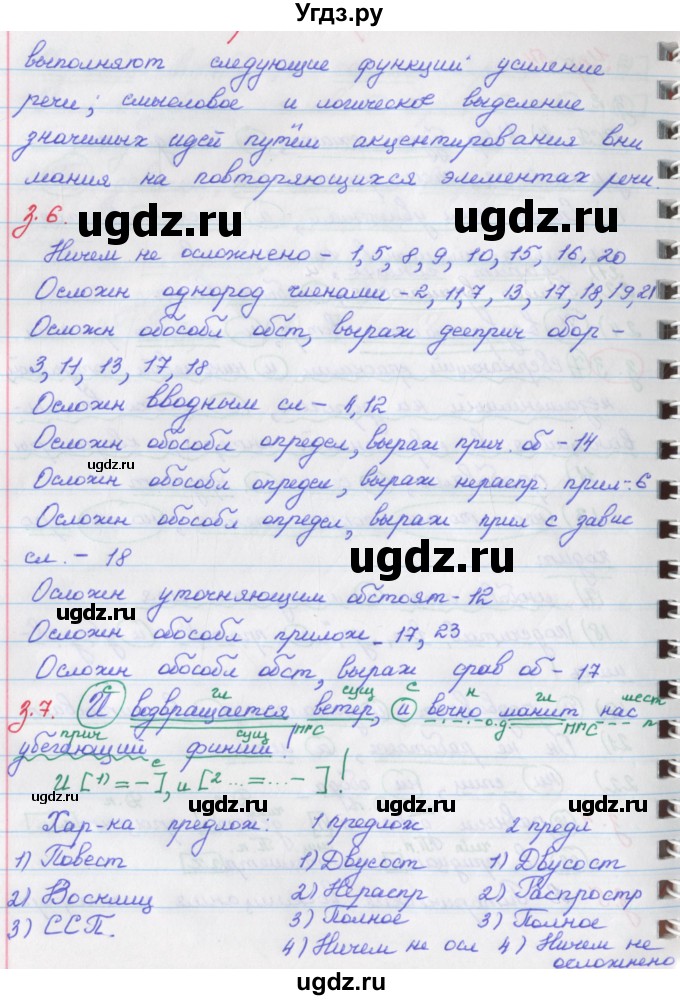 Угдз.ру
выполняют следующие функции: усиление
речи; смысловое и логическое выделение
значимых идей путём акцентирования вни
мания на повторяющихся элементах речи.
ugdz.ru ugdz.ru
З.6.
Ничем не осложнено - 1, 5, 8, 9, 10, 15, 16, 20
Осложн однород членами - 2, 11, 7, 13, 17, 18, 19, 21
Осложн обособл обст, выраж дееприч обор -
3, 11, 13, 17, 18
Осложн вводным сл - 4, 12
Осложн обособл определ, выраж прич. об - 14
ugdz.ru
Осложн обособл определ, выраж нераспр прил - 6
Осложн обособл определ, выраж прил с завис
сл. - 18
ugdz.ru
Осложн уточняющим обстоят - 12
ugdz.ru
Осложн обособл прилож - 17, 23
Осложн обособл обст, выраж срав об - 17
с гл сущ с н гл мест
З.7. И возвращается ветер, и вечно манит нас
прич сущ НРС о.д. НРС п
убегающий финиш!
с
И [1) = -], и [2 ... = ... - ]!
ugdz.ru ugdz.ru
Хар-ка предлож: 1 предлож 2 предл
1) Повест 1) Двусост 1) Двусост
2) Восклиц 2) Нераспр 2) Распростр
3) ССП. 3) Полное 3) Полное
4) Ничем не осл 4) Ничем не
осложнено
ugdz.ru ugdz.ru